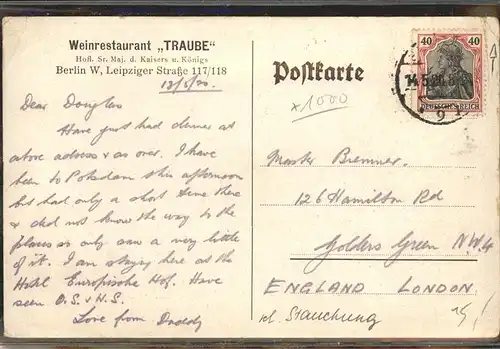 Weinrestaurant „TRAUBE"
Hofl. Sr. Maj. d. Kaisers u. Königs
Berlin W, Leipziger Straße 117/118
13/5/20.
Dear Douglas
Have just had dinner at
above address & as over. I have
been to Potsdam this afternoon
but had only a short time there
& did not know the way to the
places so only saw a very little
of it. I am staying here at the
Hotel Europäische Hof. Have
seen O.S. & H.S.
Love from Daddy
Postkarte
x 1000
40 40
DEUTSCHES REICH
14.5.20.
Master Bremner
126 Hamilton Rd
Golders Green N.W.4
ENGLAND LONDON
kl. Stauchung